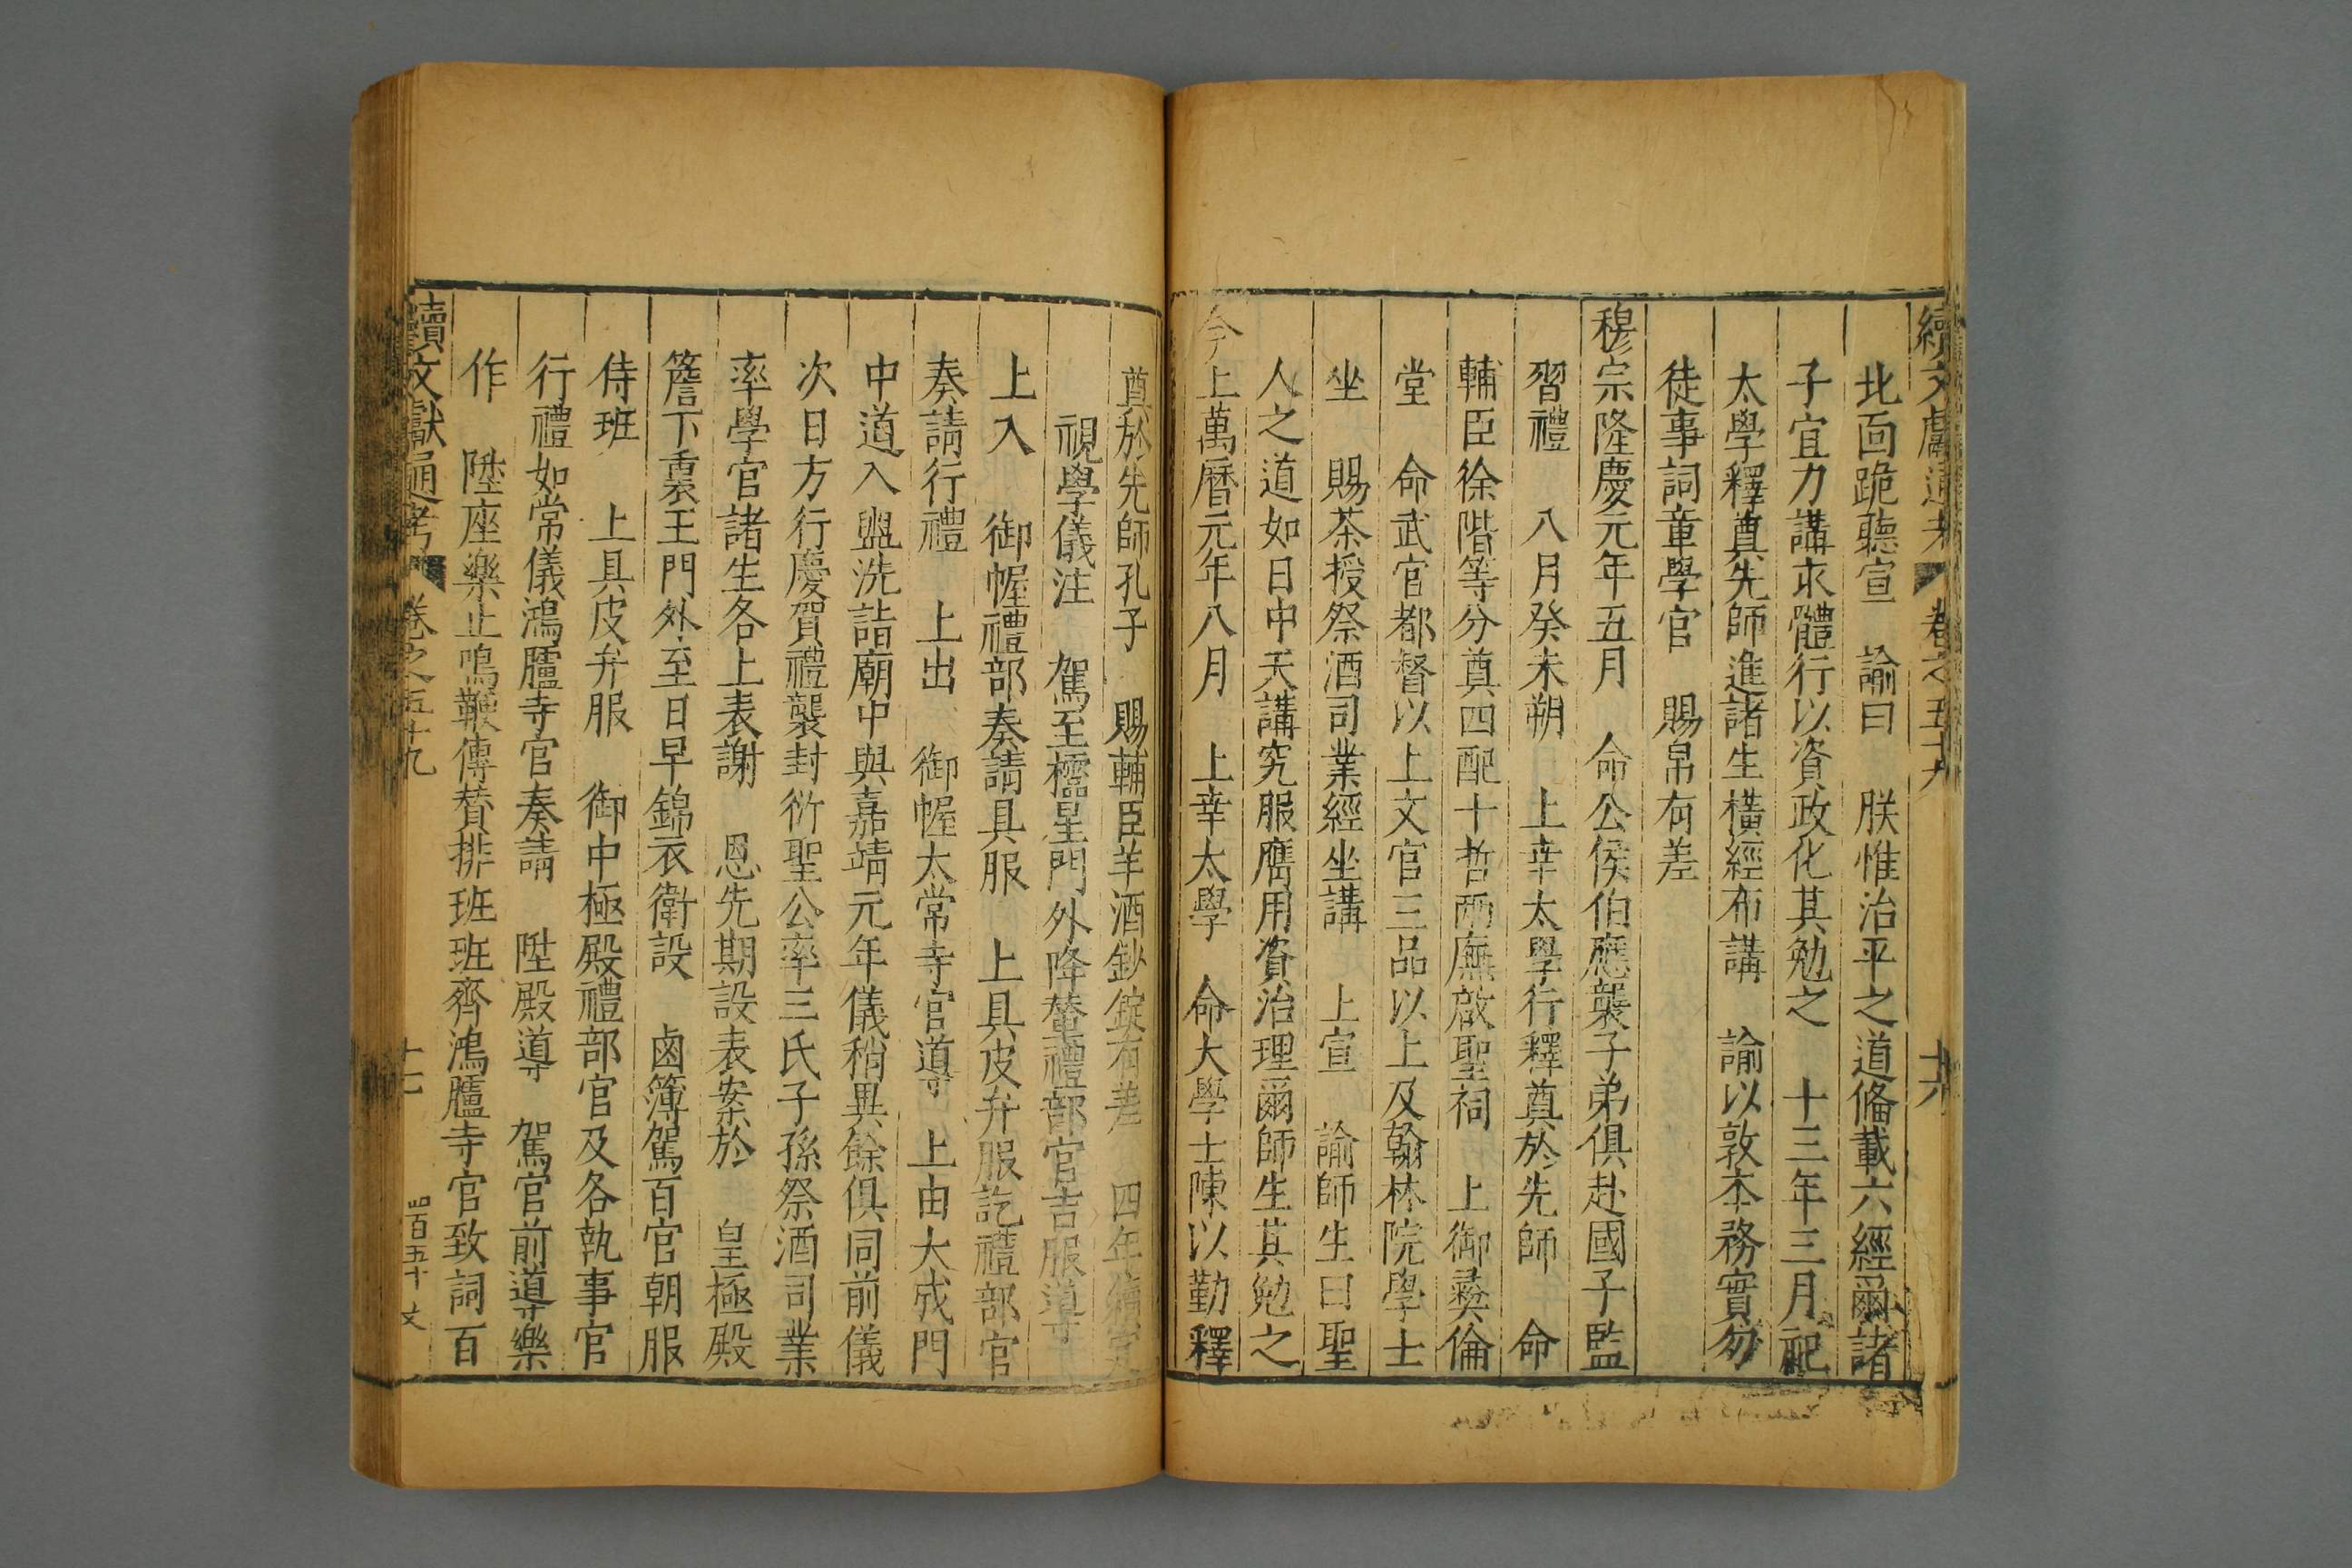 續文獻通考 卷之五十九 十六
北面跪聽宣 諭曰 朕惟治平之道備載六經爾諸
子宜力講求體行以資政化其勉之 十三年三月祀
太學釋奠先師進諸生橫經布講 諭以敦本務實勿
徒事詞章學官 賜帛有差
穆宗隆慶元年五月 命公侯伯應襲子弟俱赴國子監
習禮 八月癸未朔 上幸太學行釋奠於先師 命
輔臣徐階等分奠四配十哲兩廡啟聖祠 上御彝倫
堂 命武官都督以上文官三品以上及翰林院學士
坐 賜茶授祭酒司業經坐講 上宣 諭師生曰聖
人之道如日中天講究服膺用資治理爾師生其勉之
今上萬曆元年八月 上幸太學 命大學士陳以勤釋
奠於先師孔子 賜輔臣羊酒鈔錠有差 四年續定
視學儀注 駕至櫺星門外降輦禮部官吉服導
上入 御幄禮部奏請具服 上具皮弁服訖禮部官
奏請行禮 上出 御幄太常寺官導 上由大成門
中道入盥洗詣廟中與嘉靖元年儀稍異餘俱同前儀
次日方行慶賀禮襲封衍聖公率三氏子孫祭酒司業
率學官諸生各上表謝 恩先期設表案於 皇極殿
簷下裏王門外至日早錦衣衛設 鹵簿駕百官朝服
侍班 上具皮弁服 御中極殿禮部官及各執事官
行禮如常儀鴻臚寺官奏請 陞殿導 駕官前導樂
作 陞座樂止鳴鞭傳贊排班班齊鴻臚寺官致詞百
續文獻通考 卷之五十九 十七 四百五十 文